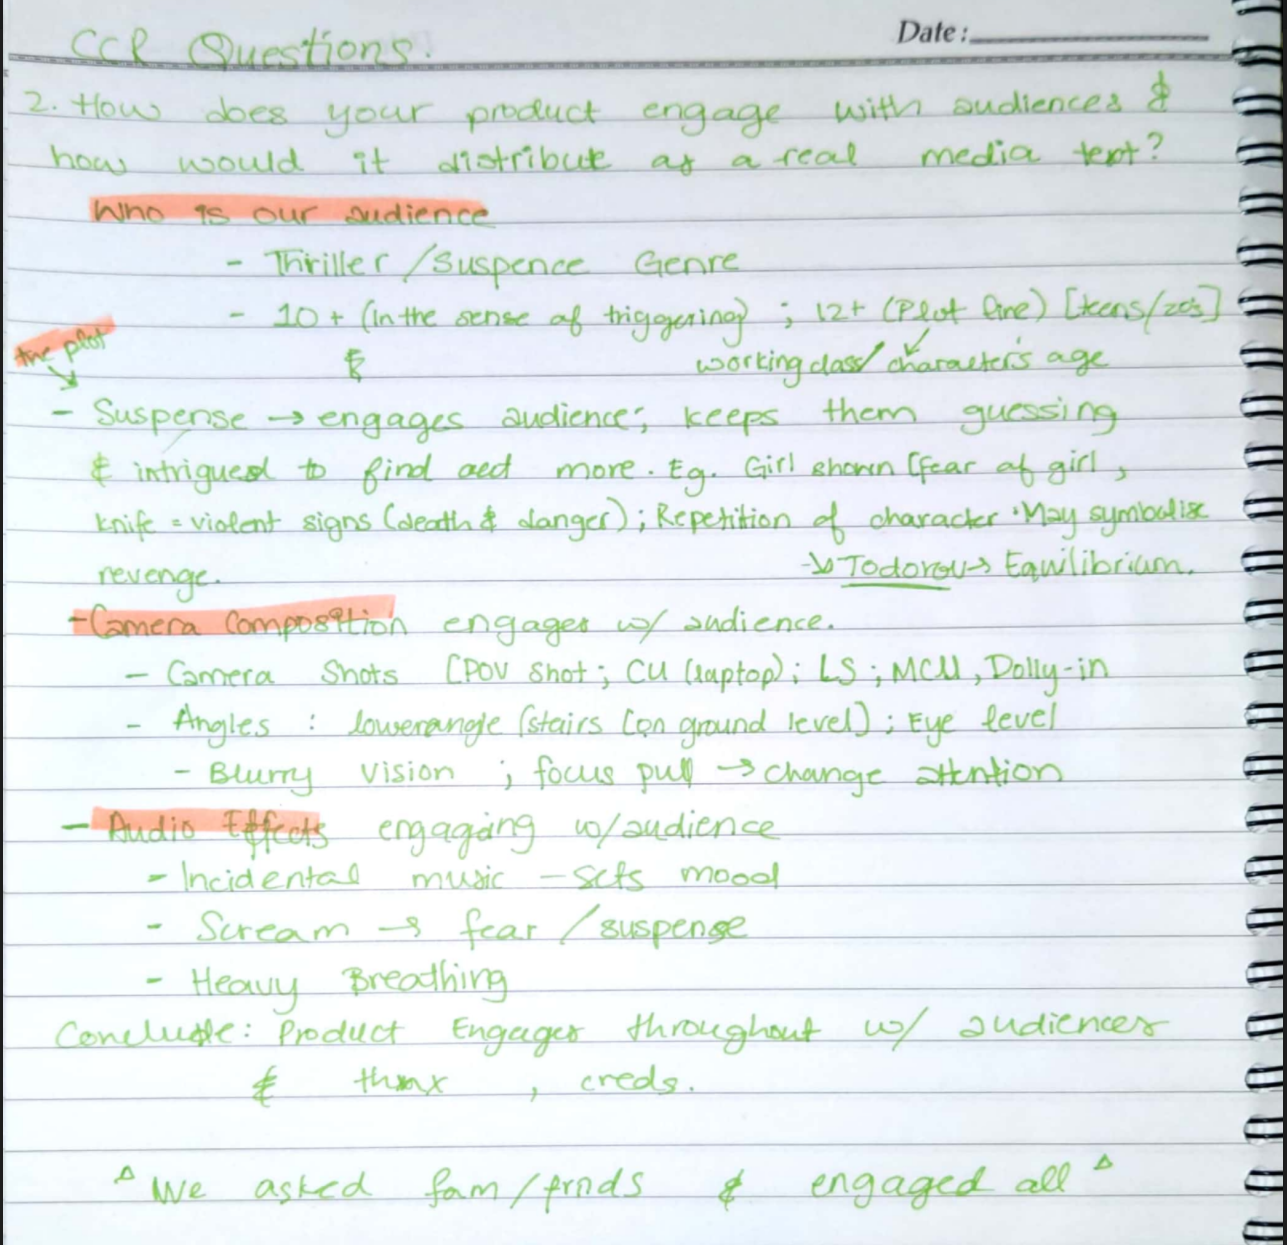 CCR Questions.
Date:
2. How does your product engage with audiences &
how would it distribute as a real media text?
Who is our audience
- Thriller/Suspence Genre
- 10+ (in the sense of triggering) ; 12+ (Plot line) [teens/20s]
the plot
& working class/ character's age
- Suspense → engages audience; keeps them guessing
& intrigued to find out more. Eg. Girl shown [fear of girl,
knife = violent signs (death & danger); Repetition of character. May symbolise
revenge. → Todorov → Equilibrium.
- Camera Composition engages w/ audience.
- Camera Shots [POV shot; CU (laptop); LS; MCU, Dolly-in
- Angles : lowerangle (stairs [on ground level); Eye level
- Blurry Vision ; focus pull → change attention
- Audio Effects engaging w/audience
- Incidental music - sets mood
- Scream → fear / suspense
- Heavy Breathing
Conclude: Product Engages throughout w/ audiences
& thnx , creds.
Δ We asked fam/frnds & engaged all Δ